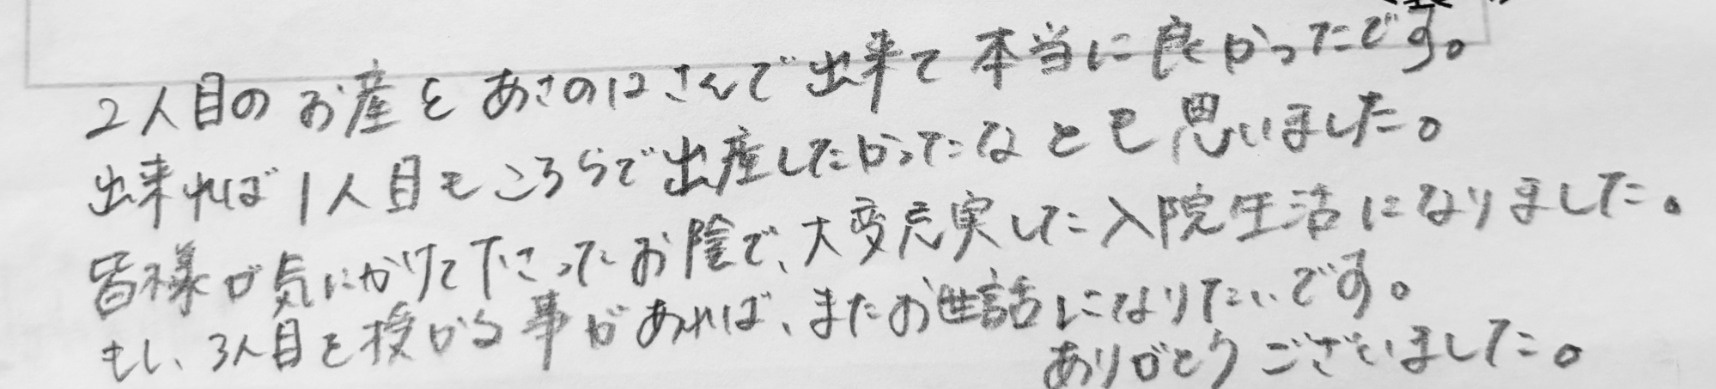 2人目のお産をあさのはさんで出来て本当に良かったです。
出来れば1人目もこちらで出産したかったなとも思いました。
皆様が気にかけて下さったお陰で、大変充実した入院生活になりました。
もし、3人目を授かる事があれば、またお世話になりたいです。
ありがとうございました。